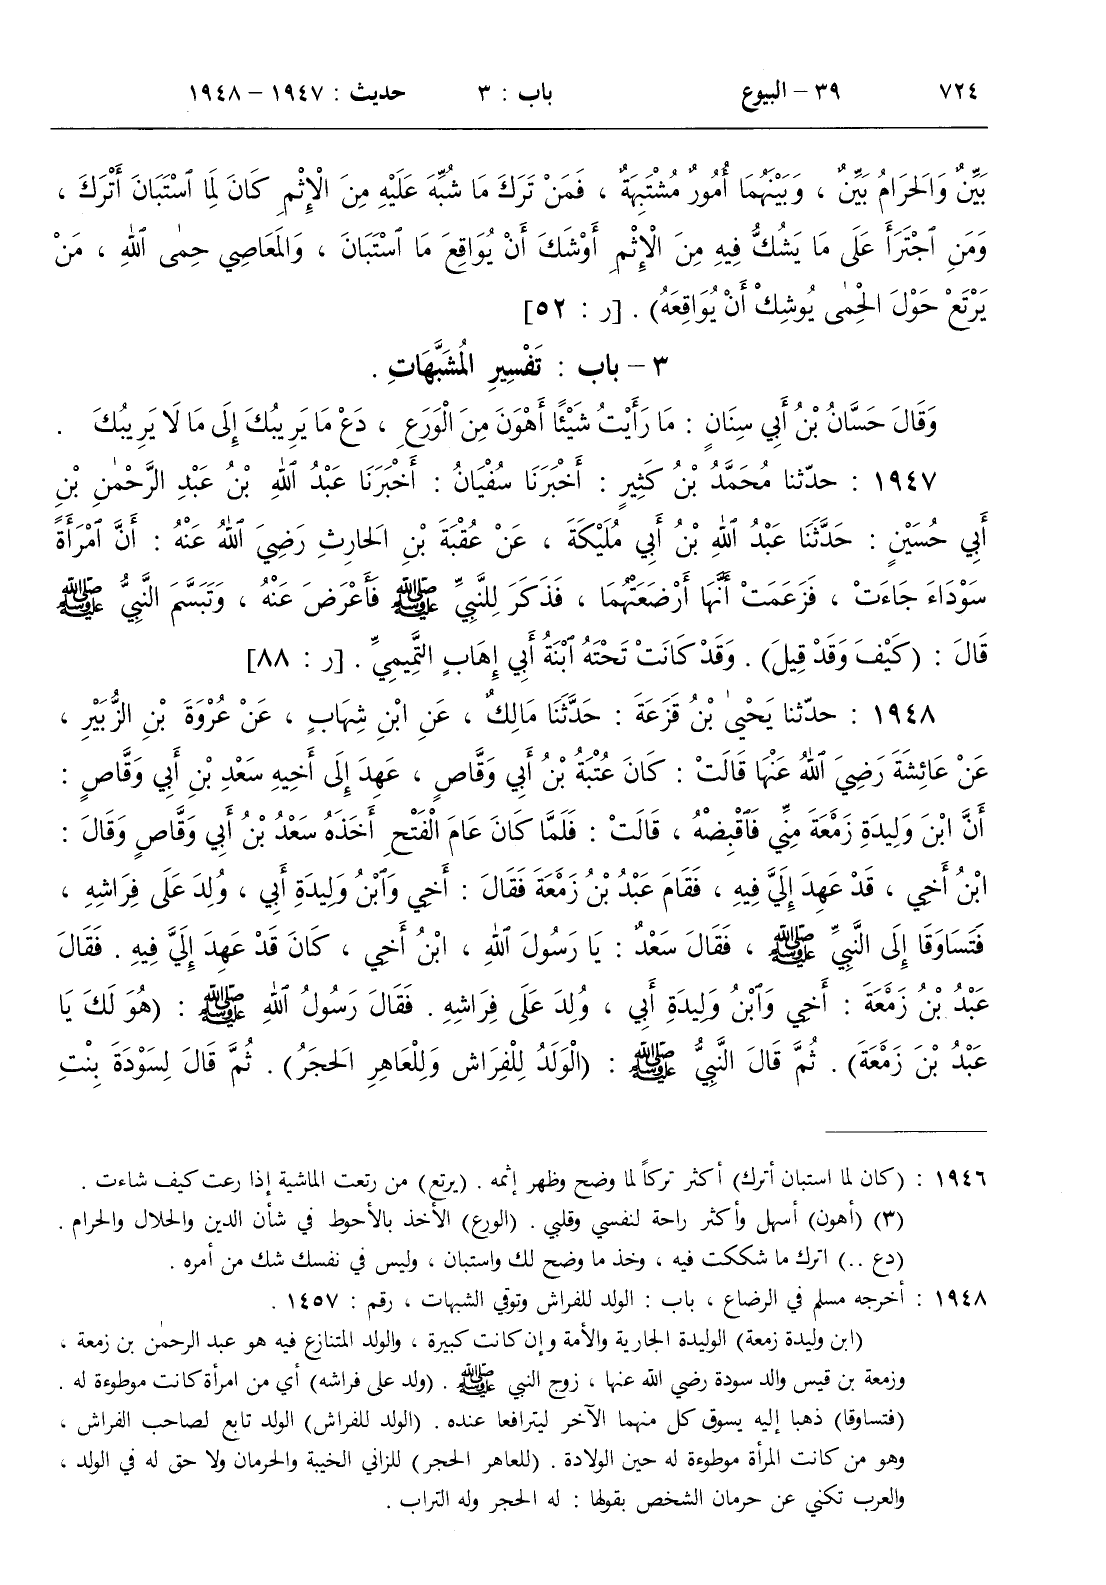 ٧٢٤ ٣٩ – البيوع باب : ٣ حديث : ١٩٤٧ – ١٩٤٨
بَيِّنٌ وَالحَرَامُ بَيِّنٌ ، وَبَيْنَهُمَا أُمُورٌ مُشْتَبِهَةٌ ، فَمَنْ تَرَكَ مَا شُبِّهَ عَلَيْهِ مِنَ الْإِثْمِ كَانَ لِمَا ٱسْتَبَانَ أَتْرَكَ ،
وَمَنِ ٱجْتَرَأَ عَلَى مَا يَشُكُّ فِيهِ مِنَ الْإِثْمِ أَوْشَكَ أَنْ يُوَاقِعَ مَا ٱسْتَبَانَ ، وَالمَعَاصِي حِمٰى ٱللهِ ، مَنْ
يَرْتَعْ حَوْلَ الحِمٰى يُوشِكْ أَنْ يُوَاقِعَهُ) . [ر : ٥٢]
٣ – باب : تَفْسِيرِ المُشَبَّهَاتِ .
وَقَالَ حَسَّانُ بْنُ أَبِي سِنَانٍ : مَا رَأَيْتُ شَيْئًا أَهْوَنَ مِنَ الْوَرَعِ ، دَعْ مَا يَرِيبُكَ إِلَى مَا لَا يَرِيبُكَ .
١٩٤٧ : حدّثنا مُحَمَّدُ بْنُ كَثِيرٍ : أَخْبَرَنَا سُفْيَانُ : أَخْبَرَنَا عَبْدُ ٱللهِ بْنُ عَبْدِ الرَّحْمٰنِ بْنِ
أَبِي حُسَيْنٍ : حَدَّثَنَا عَبْدُ ٱللهِ بْنُ أَبِي مُلَيْكَةَ ، عَنْ عُقْبَةَ بْنِ الحَارِثِ رَضِيَ ٱللهُ عَنْهُ : أَنَّ ٱمْرَأَةً
سَوْدَاءَ جَاءَتْ ، فَزَعَمَتْ أَنَّهَا أَرْضَعَتْهُمَا ، فَذَكَرَ لِلنَّبِيِّ ﷺ فَأَعْرَضَ عَنْهُ ، وَتَبَسَّمَ النَّبِيُّ ﷺ
قَالَ : (كَيْفَ وَقَدْ قِيلَ) . وَقَدْ كَانَتْ تَحْتَهُ ٱبْنَةُ أَبِي إِهَابٍ التَّمِيمِيِّ . [ر : ٨٨]
١٩٤٨ : حدّثنا يَحْيىٰ بْنُ قَزَعَةَ : حَدَّثَنَا مَالِكٌ ، عَنِ ابْنِ شِهَابٍ ، عَنْ عُرْوَةَ بْنِ الزُّبَيْرِ ،
عَنْ عَائِشَةَ رَضِيَ ٱللهُ عَنْهَا قَالَتْ : كَانَ عُتْبَةُ بْنُ أَبِي وَقَّاصٍ ، عَهِدَ إِلَى أَخِيهِ سَعْدِ بْنِ أَبِي وَقَّاصٍ :
أَنَّ ابْنَ وَلِيدَةِ زَمْعَةَ مِنِّي فَاقْبِضْهُ ، قَالَتْ : فَلَمَّا كَانَ عَامَ الْفَتْحِ أَخَذَهُ سَعْدُ بْنُ أَبِي وَقَّاصٍ وَقَالَ :
ابْنُ أَخِي ، قَدْ عَهِدَ إِلَيَّ فِيهِ ، فَقَامَ عَبْدُ بْنُ زَمْعَةَ فَقَالَ : أَخِي وَٱبْنُ وَلِيدَةِ أَبِي ، وُلِدَ عَلَى فِرَاشِهِ ،
فَتَسَاوَقَا إِلَى النَّبِيِّ ﷺ ، فَقَالَ سَعْدٌ : يَا رَسُولَ ٱللهِ ، ابْنُ أَخِي ، كَانَ قَدْ عَهِدَ إِلَيَّ فِيهِ . فَقَالَ
عَبْدُ بْنُ زَمْعَةَ : أَخِي وَٱبْنُ وَلِيدَةِ أَبِي ، وُلِدَ عَلَى فِرَاشِهِ . فَقَالَ رَسُولُ ٱللهِ ﷺ : (هُوَ لَكَ يَا
عَبْدُ بْنَ زَمْعَةَ) . ثُمَّ قَالَ النَّبِيُّ ﷺ : (الْوَلَدُ لِلْفِرَاشِ وَلِلْعَاهِرِ الحَجَرُ) . ثُمَّ قَالَ لِسَوْدَةَ بِنْتِ
١٩٤٦ : (كان لما استبان أترك) أكثر تركاً لما وضح وظهر إثمه . (يرتع) من رتعت الماشية إذا رعت كيف شاءت .
(٣) (أهون) أسهل وأكثر راحة لنفسي وقلبي . (الورع) الأخذ بالأحوط في شأن الدين والحلال والحرام .
(دع ..) اترك ما شككت فيه ، وخذ ما وضح لك واستبان ، وليس في نفسك شك من أمره .
١٩٤٨ : أخرجه مسلم في الرضاع ، باب : الولد للفراش وتوقي الشبهات ، رقم : ١٤٥٧ .
(ابن وليدة زمعة) الوليدة الجارية والأمة وإن كانت كبيرة ، والولد المتنازع فيه هو عبد الرحمٰن بن زمعة ،
وزمعة بن قيس والد سودة رضي الله عنها ، زوج النبي ﷺ . (ولد على فراشه) أي من امرأة كانت موطوءة له .
(فتساوقا) ذهبا إليه يسوق كل منهما الآخر ليترافعا عنده . (الولد للفراش) الولد تابع لصاحب الفراش ،
وهو من كانت المرأة موطوءة له حين الولادة . (للعاهر الحجر) للزاني الخيبة والحرمان ولا حق له في الولد ،
والعرب تكني عن حرمان الشخص بقولها : له الحجر وله التراب .